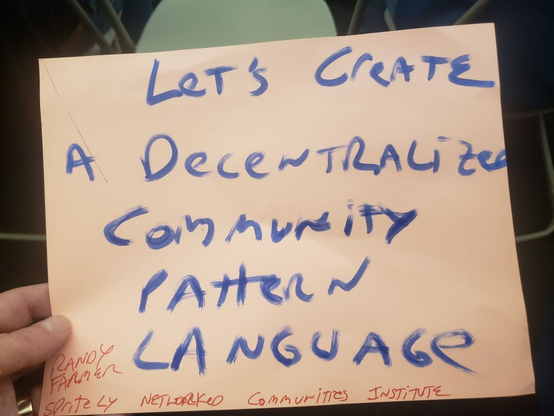 LET'S CREATE
A DECENTRALIZED
COMMUNITY
PATTERN
LANGUAGE
RANDY
FARMER
SPRITELY NETWORKED COMMUNITIES INSTITUTE